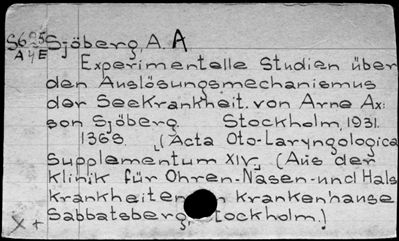 S605 Sjöberg, A. A
A4E Experimentelle Studien über
den Auslösungsmechanismus
der Seekrankheit. von Arne Ax:
son Sjöberg Stockholm, 1931.
136S. (Acta Oto-Laryngologica
Supplementum XIV) (Aus der
Klinik für Ohren-Nasen-und Hals
krankheiten krankenhause
Sabbatsberg, Stockholm.)
X +